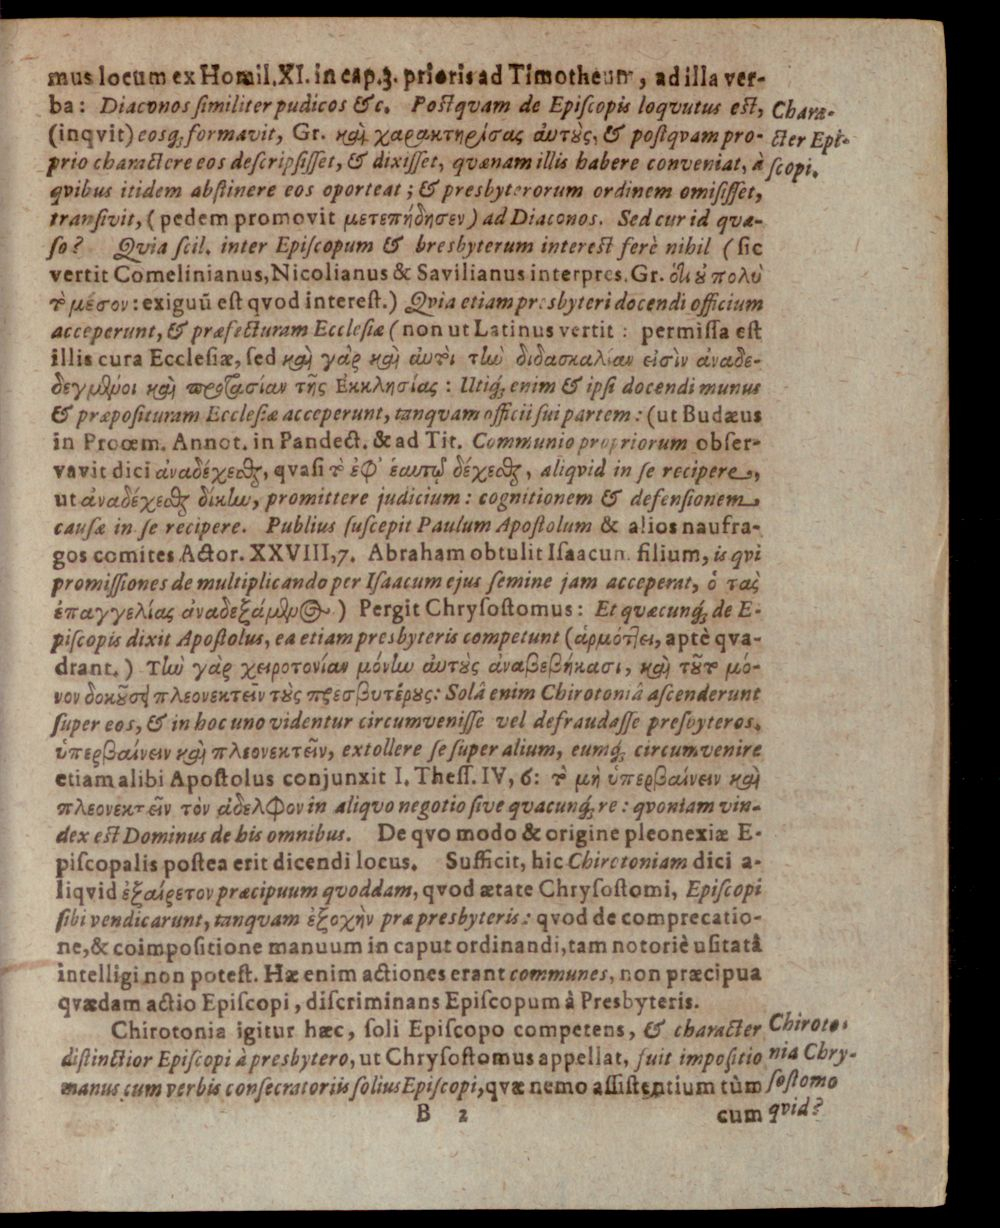 mus locum ex Homil. XI. in cap. 3. prioris ad Timotheum, ad illa ver-
ba: Diaconos ſimiliter pudicos &c. Poſtqvam de Epiſcopis loqvutus eſt,
(inqvit) eosq́; formavit, Gr. καὶ χαρακτηρίσας ἀυτοὺς, & poſtqvam pro-
prio charactere eos deſcripſiſſet, & dixiſſet, qvænam illis habere conveniat, à
qvibus itidem abſtinere eos oporteat; & presbyterorum ordinem omiſiſſet,
tranſivit, (pedem promovit μετεπήδησεν) ad Diaconos. Sed cur id qvæ-
ſo? Qvia ſcil. inter Epiſcopum & bresbyterum intereſt ferè nihil (ſic
vertit Comelinianus, Nicolianus & Savilianus interpres. Gr. ὅτι οὐ πολὺ
τὸ μέσον: exiguū eſt qvod intereſt.) Qvia etiam presbyteri docendi officium
acceperunt, & præfecturam Eccleſiæ (non ut Latinus vertit: permiſſa eſt
illis cura Eccleſiæ, ſed καὶ γὰρ καὶ ἀυτοὶ τὴν διδασκαλίαν εἰσὶν ἀναδε-
δεγμένοι καὶ προστασίαν τῆς Εκκλησίας: Utiq́; enim & ipſi docendi munus
& præpoſituram Eccleſiæ acceperunt, tanquam officii ſui partem: (ut Budæus
in Proœm. Annot. in Pandect. & ad Tit. Communio propriorum obſer-
vavit dici ἀναδέχεσθαι, qvaſi τὸ ἐφ' ἑαυτῷ δέχεσθαι, aliqvid in ſe recipere,
ut ἀναδέχεσθαι δίκην, promittere judicium: cognitionem & defenſionem
cauſæ in ſe recipere. Publius ſuſcepit Paulum Apoſtolum & alios naufra-
gos comites Actor. XXVIII, 7. Abraham obtulit Iſaacum filium, is qvi
promiſſiones de multiplicando per Iſaacum ejus ſemine jam acceperat, ὁ τὰς
ἐπαγγελίας ἀναδεξάμενος.) Pergit Chryſoſtomus: Et qvæcunq́; de E-
piſcopis dixit Apoſtolus, ea etiam presbyteris competunt (ἁρμόττει, aptè qva-
drant.) Τὴν γὰρ χειροτονίαν μόνην ἀυτοὺς ἀναβεβήκασι, καὶ τοῦτο μό-
νον δοκοῦσι πλεονεκτεῖν τοὺς πρεσβυτέρους: Solâ enim Chirotoniâ aſcenderunt
ſuper eos, & in hoc uno videntur circumveniſſe vel defraudaſſe presbyteros.
ὑπερβαίνειν καὶ πλεονεκτεῖν, extollere ſe ſuper alium, eumq́; circumvenire
etiam alibi Apoſtolus conjunxit I. Theſſ. IV, 6: τὸ μὴ ὑπερβαίνειν καὶ
πλεονεκτεῖν τὸν ἀδελφον in aliqvo negotio ſive qvacunq́; re: qvoniam vin-
dex eſt Dominus de his omnibus. De qvo modo & origine pleonexiæ E-
piſcopalis poſtea erit dicendi locus. Sufficit, hic Chirotoniam dici a-
liqvid ἐξαίρετον præcipuum qvoddam, qvod ætate Chryſoſtomi, Epiſcopi
ſibi vendicarunt, tanquam ἐξοχὴν præ presbyteris: qvod de comprecatio-
ne, & coimpoſitione manuum in caput ordinandi, tam notoriè uſitatâ
intelligi non poteſt. Hæ enim actiones erant communes, non præcipua
qvædam actio Epiſcopi, diſcriminans Epiſcopum â Presbyteris.
Chirotonia igitur hæc, ſoli Epiſcopo competens, & character
diſtinctior Epiſcopi à presbytero, ut Chryſoſtomus appellat, fuit impoſitio
manus cum verbis conſecratoriis ſolius Epiſcopi, qvæ nemo aſſiſtentium tùm
B 2 cum
Chara-
cter Epi-
ſcopi.
Chiroto-
nia Chry-
ſoſtomo
qvid?